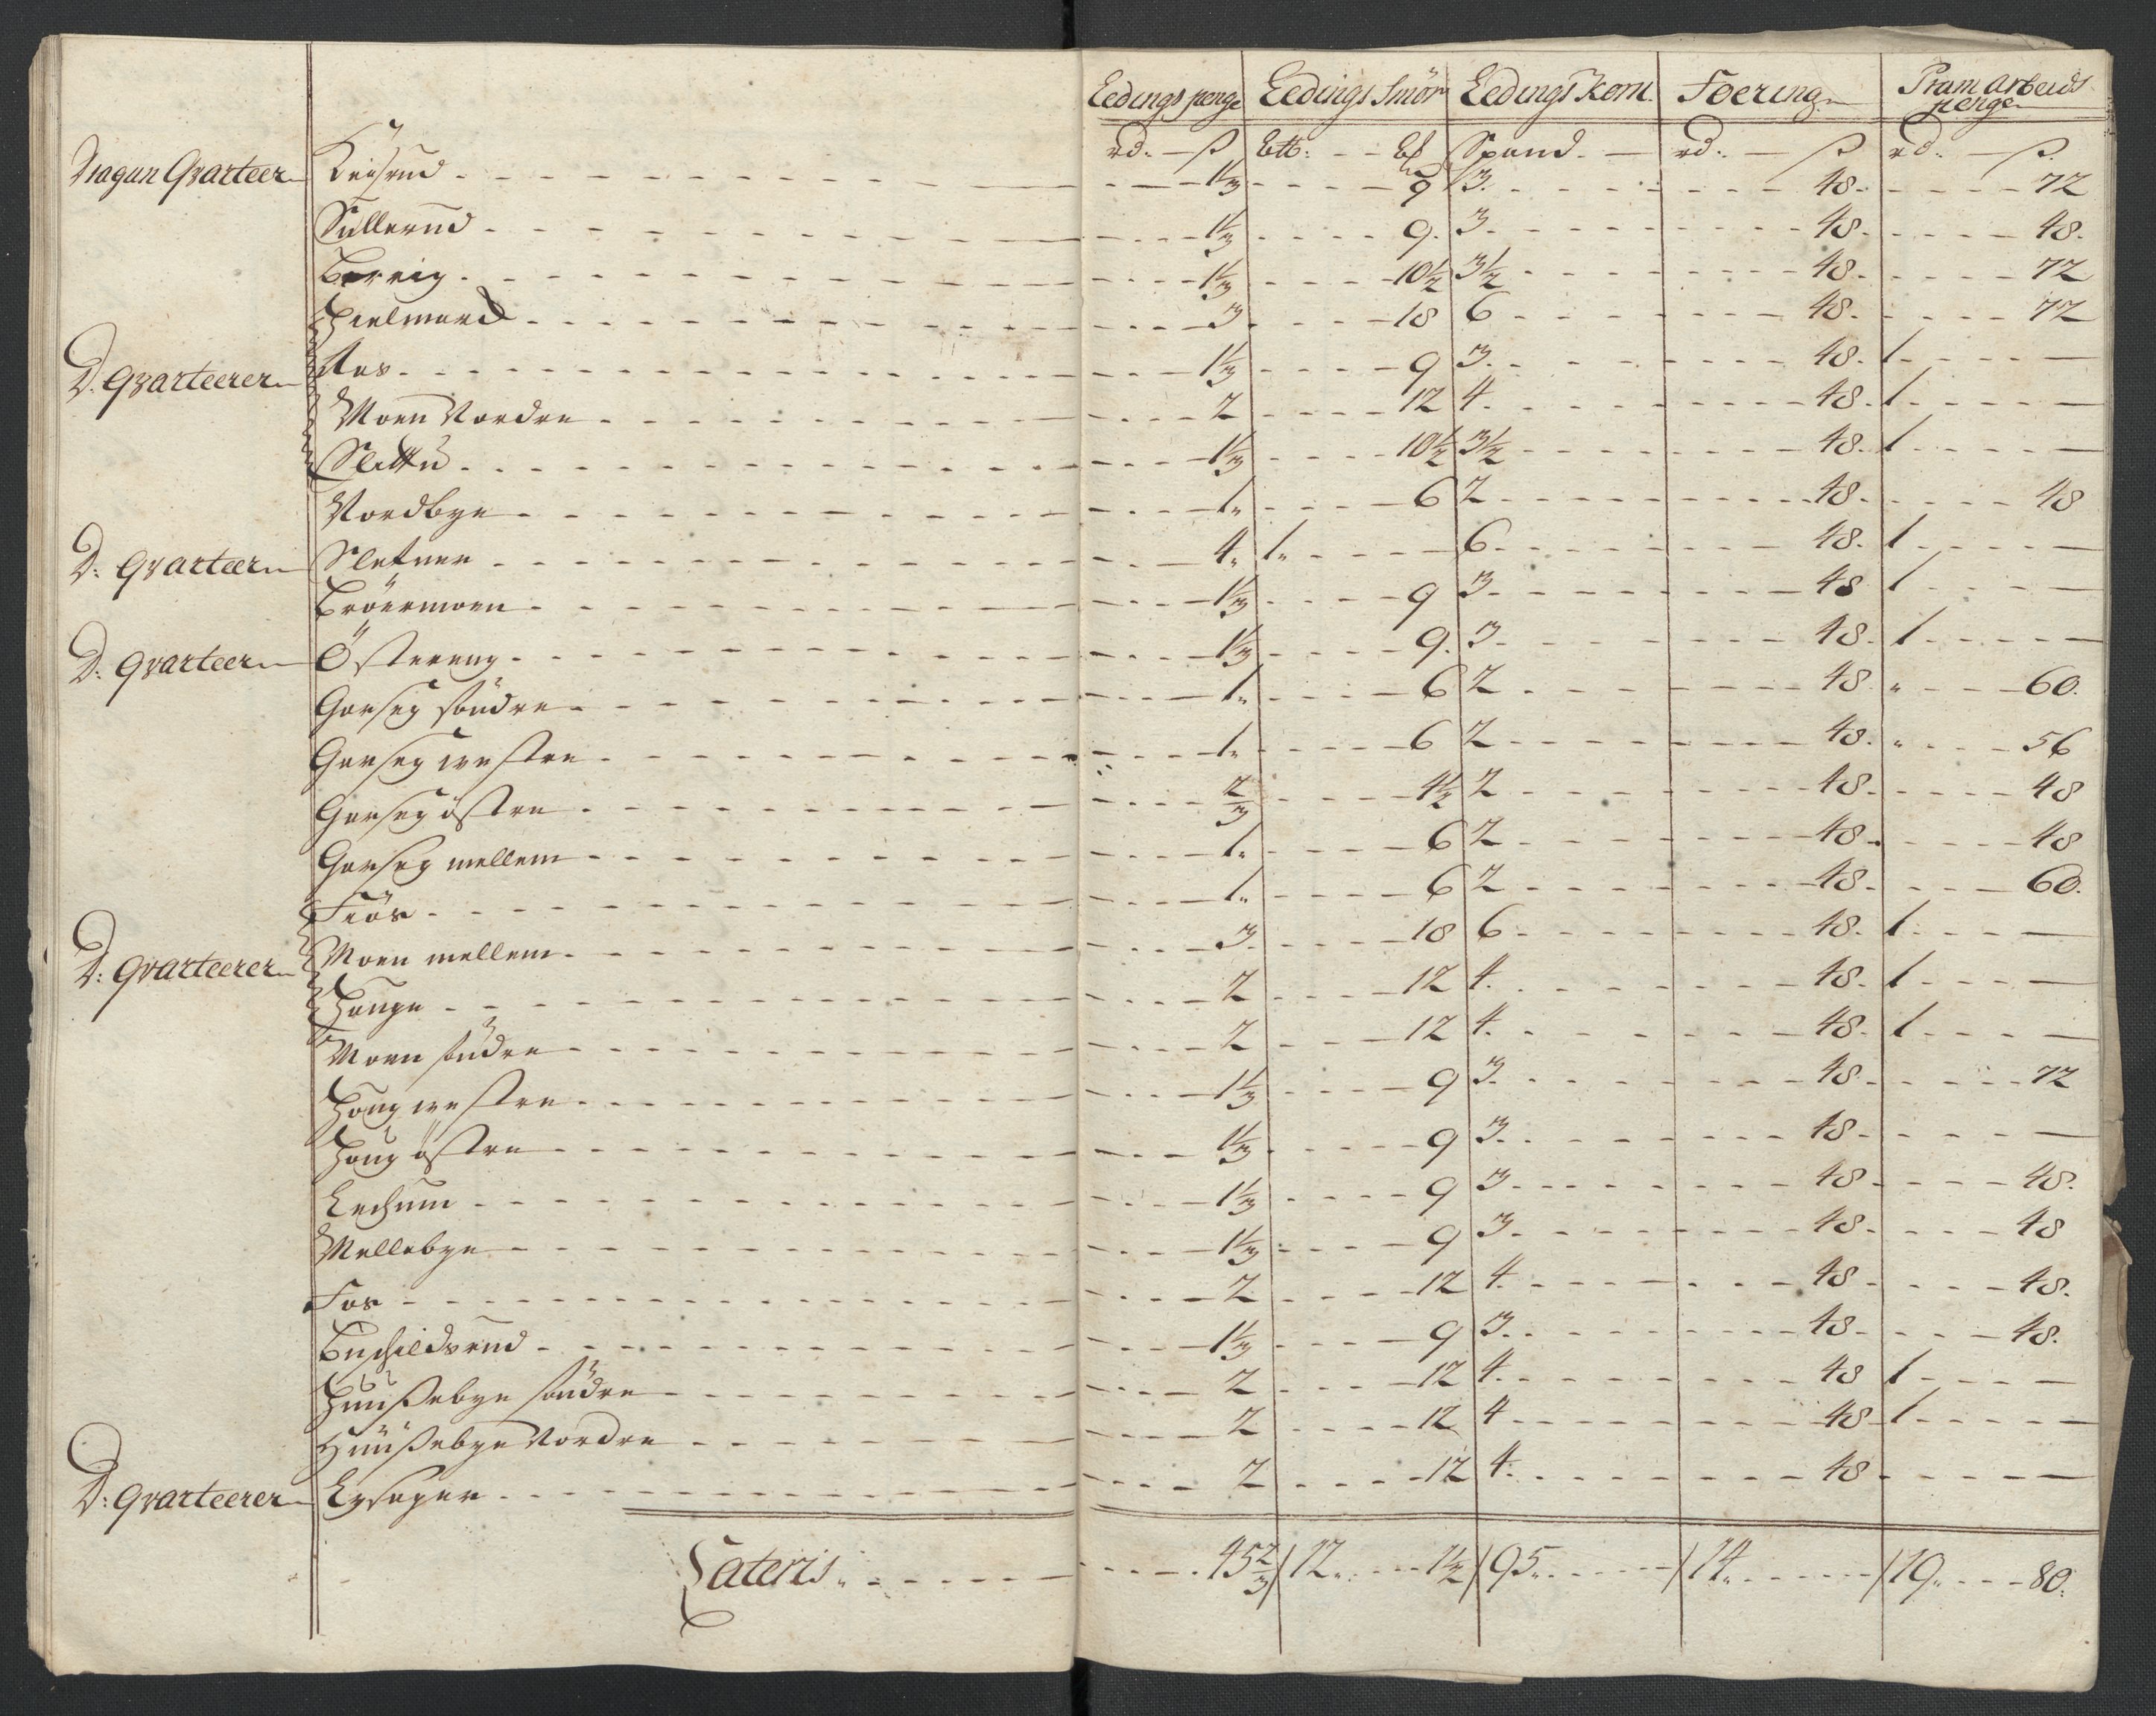 Ledings penge Ledings Smör Ledings Korn Foering Pram Arbeids penge
rd: ß Btt: Spand rd: ß rd: ß
Dragun Qvarteer Krisrud 1⅓ 9 3 48 72
Sullerud 1⅓ 9 3 48 48
Berrig 1⅓ 10½ 3½ 48 72
Hielmerud 3 18 6 48 72
D. Qvarteerer Aas 1⅓ 9 3 48 1
Moen Nordre 2 12 4 48 1
Slette 1⅓ 10½ 3½ 48 1
Nordbye 1 6 2 48 48
D: Qvarteer Sletner 4 1 6 48 1
Bröermoen 1⅓ 9 3 48 1
D: Qvarteer Östereng 1⅓ 9 3 48 1
Garseg söndre 1 6 2 48 60
Garseg westre 1 6 2 48 56
Garseg östre ⅔ 4½ 2 48 48
Garseg mellem 1 6 2 48 48
Fiös 1 6 2 48 60
D: Qvarteerer Moen mellem 3 18 6 48 1
Houge 2 12 4 48 1
Moen südre 2 12 4 48 1
Houg westre 1⅓ 9 3 48 72
Houg östre 1⅓ 9 3 48
Lechum 1⅓ 9 3 48 48
Mellebye 1⅓ 9 3 48 48
Fos 2 12 4 48 48
Buchildsrud 1⅓ 9 3 48 48
Huußebye söndre 2 12 4 48 1
Huußebye Nordre 2 12 4 48 1
D: Qvarteerer Lysager 2 12 4 48
Lateris 45⅔ 12 1½ 95 14 19 80